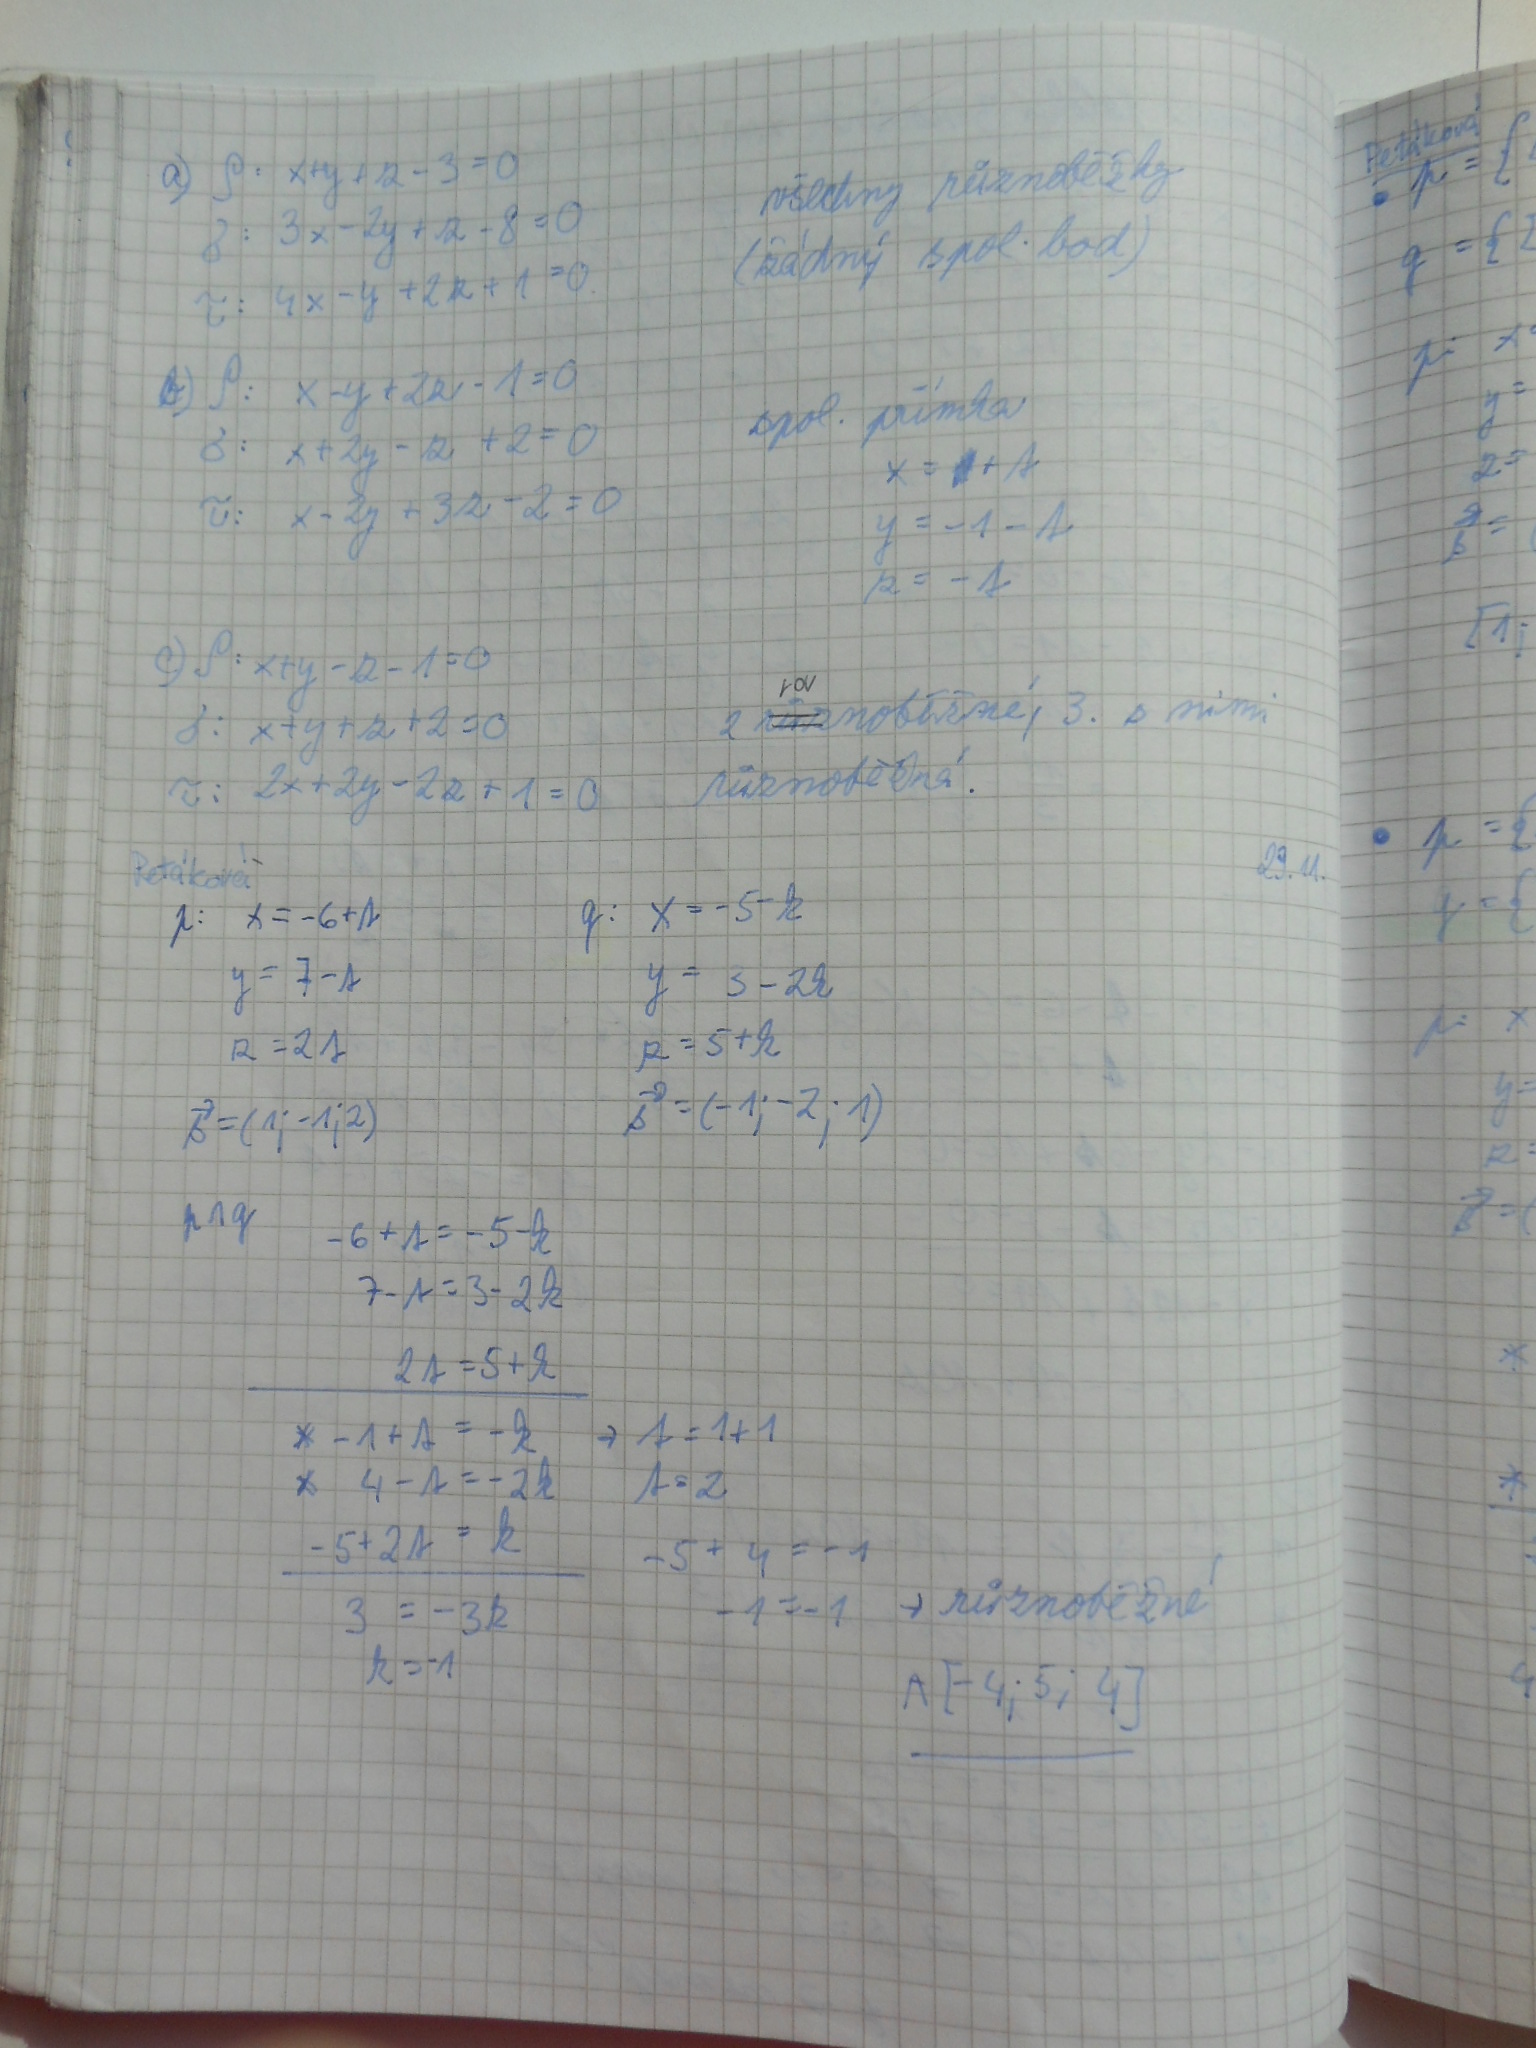 a) ρ: x+y+z-3=0
δ: 3x-2y+z-8=0
τ: 4x-y+2z+1=0
všechny různoběžky
(žádný spol. bod)
b) ρ: x-y+2z-1=0
δ: x+2y-z+2=0
τ: x-2y+3z-2=0
spol. přímka
x = t
y = -1-t
z = -t
c) ρ: x+y-z-1=0
δ: x+y+z+2=0
τ: 2x+2y-2z+1=0
rov
2 různoběžné, 3. s nimi
různoběžná.
Petáková
29.11.
p: x=-6+t
y=7-t
z=2t
s⃗=(1;-1;2)
q: x=-5-k
y=3-2k
z=5+k
s⃗=(-1;-2;1)
p∧q
-6+t=-5-k
7-t=3-2k
2t=5+k
* -1+t=-k → t=1+1
* 4-t=-2k t=2
-5+2t=k -5+4=-1
3=-3k -1=-1 → různoběžné
k=-1
A[-4;5;4]
Petáková
• p={
q={
p: x=
y=
z=
s⃗=(
[1;
• p={
q={
p: x
y=
z=
s⃗=(
*
*